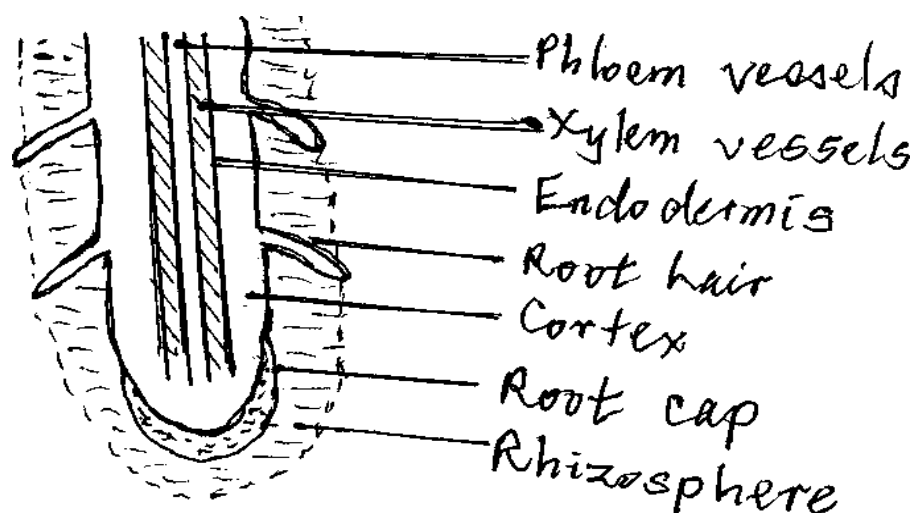 Phloem vessels
Xylem vessels
Endodermis
Root hair
Cortex
Root cap
Rhizosphere